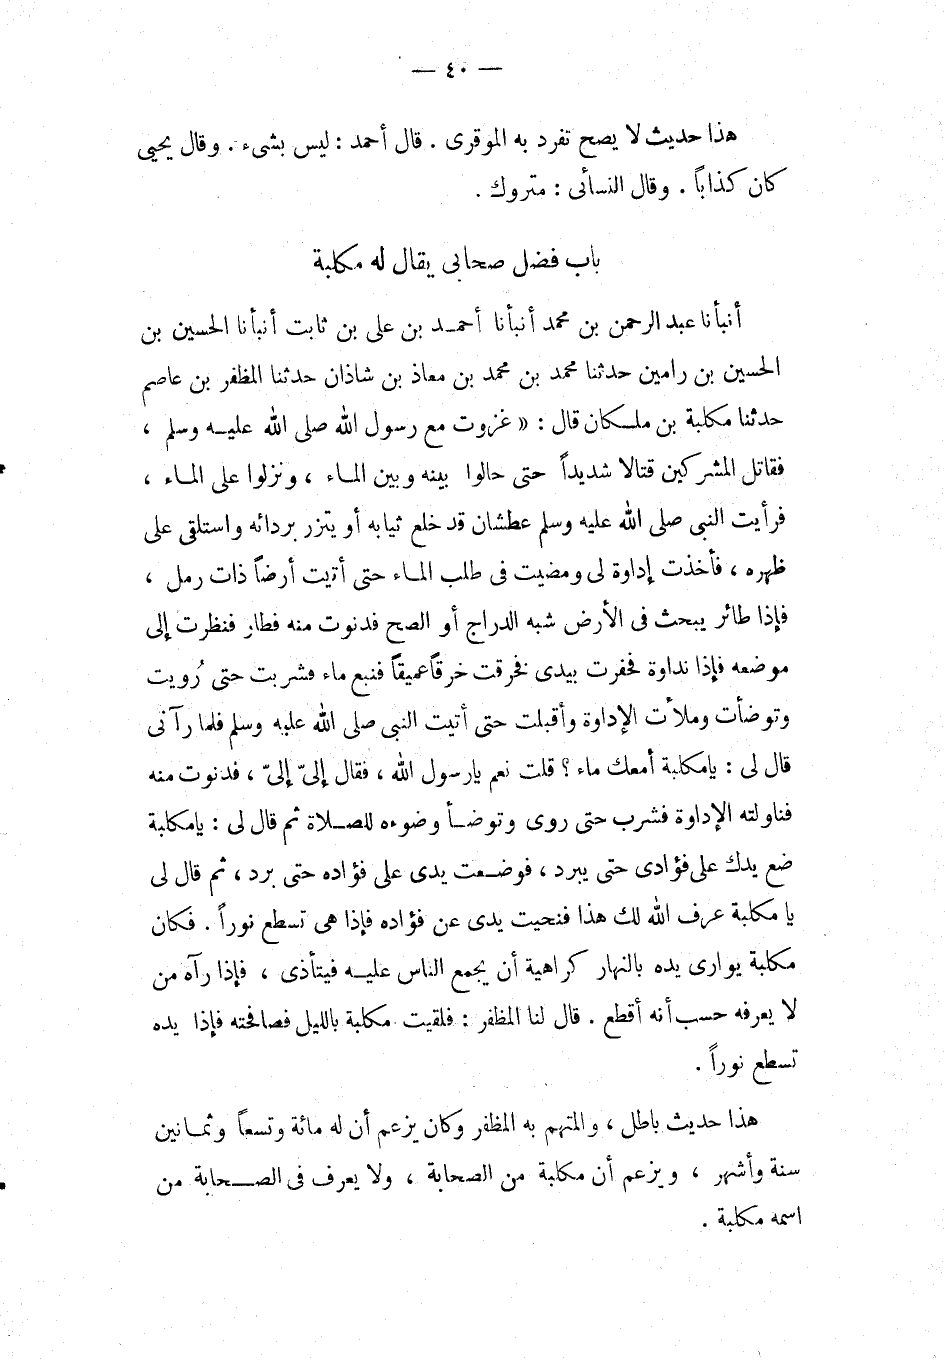 — ٤٠ —
هذا حديث لا يصح تفرد به الموقرى . قال أحمد : ليس بشىء . وقال يحيى
كان كذاباً . وقال النسائى : متروك .
باب فضل صحابى يقال له مكلبة
أنبأنا عبد الرحمن بن محمد أنبأنا أحمد بن على بن ثابت أنبأنا الحسين بن
الحسين بن رامين حدثنا محمد بن محمد بن معاذ بن شاذان حدثنا المظفر بن عاصم
حدثنا مكلبة بن ملكان قال : « غزوت مع رسول الله صلى الله عليه وسلم ،
فقاتل المشركين قتالا شديداً حتى حالوا بينه وبين الماء ، ونزلوا على الماء ،
فرأيت النبى صلى الله عليه وسلم عطشان قد خلع ثيابه أو يتزر بردائه واستلقى على
ظهره ، فأخذت إداوة لى ومضيت فى طلب الماء حتى أتيت أرضاً ذات رمل ،
فإذا طائر يبحث فى الأرض شبه الدراج أو الصح فدنوت منه فطار فنظرت إلى
موضعه فإذا نداوة فحفرت بيدى فخرقت خرقاً عميقاً فنبع ماء فشربت حتى رُويت
وتوضأت وملأت الإداوة وأقبلت حتى أتيت النبى صلى الله عليه وسلم فلما رآنى
قال لى : يامكلبة أمعك ماء ؟ قلت نعم يارسول الله ، فقال إلىّ إلىّ ، فدنوت منه
فناولته الإداوة فشرب حتى روى وتوضأ وضوءه للصلاة ثم قال لى : يامكلبة
ضع يدك على فؤادى حتى يبرد ، فوضعت يدى على فؤاده حتى برد ، ثم قال لى
يا مكلبة عرف الله لك هذا فنحيت يدى عن فؤاده فإذا هى تسطع نوراً . فكان
مكلبة يوارى يده بالنهار كراهية أن يجمع الناس عليه فيتأذى ، فإذا رآه من
لا يعرفه حسب أنه أقطع . قال لنا المظفر : فلقيت مكلبة بالليل فصافحته فإذا يده
تسطع نوراً .
هذا حديث باطل ، والمتهم به المظفر وكان يزعم أن له مائة وتسعاً وثمانين
سنة وأشهر ، ويزعم أن مكلبة من الصحابة ، ولا يعرف فى الصحابة من
اسمه مكلبة .